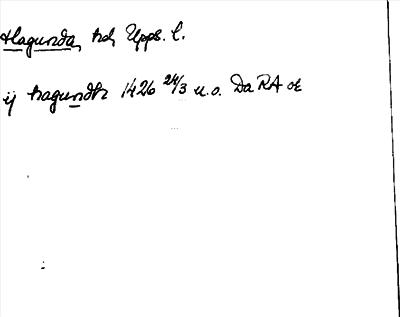 Hagunda, hd, Upps. l.
ij hagundh 1426 24/3 u.o. Da RA or